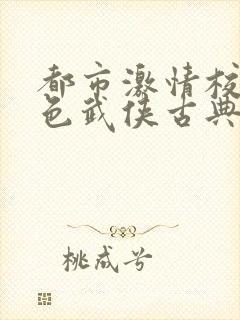 都市激情校
色武侠古典
桃成兮